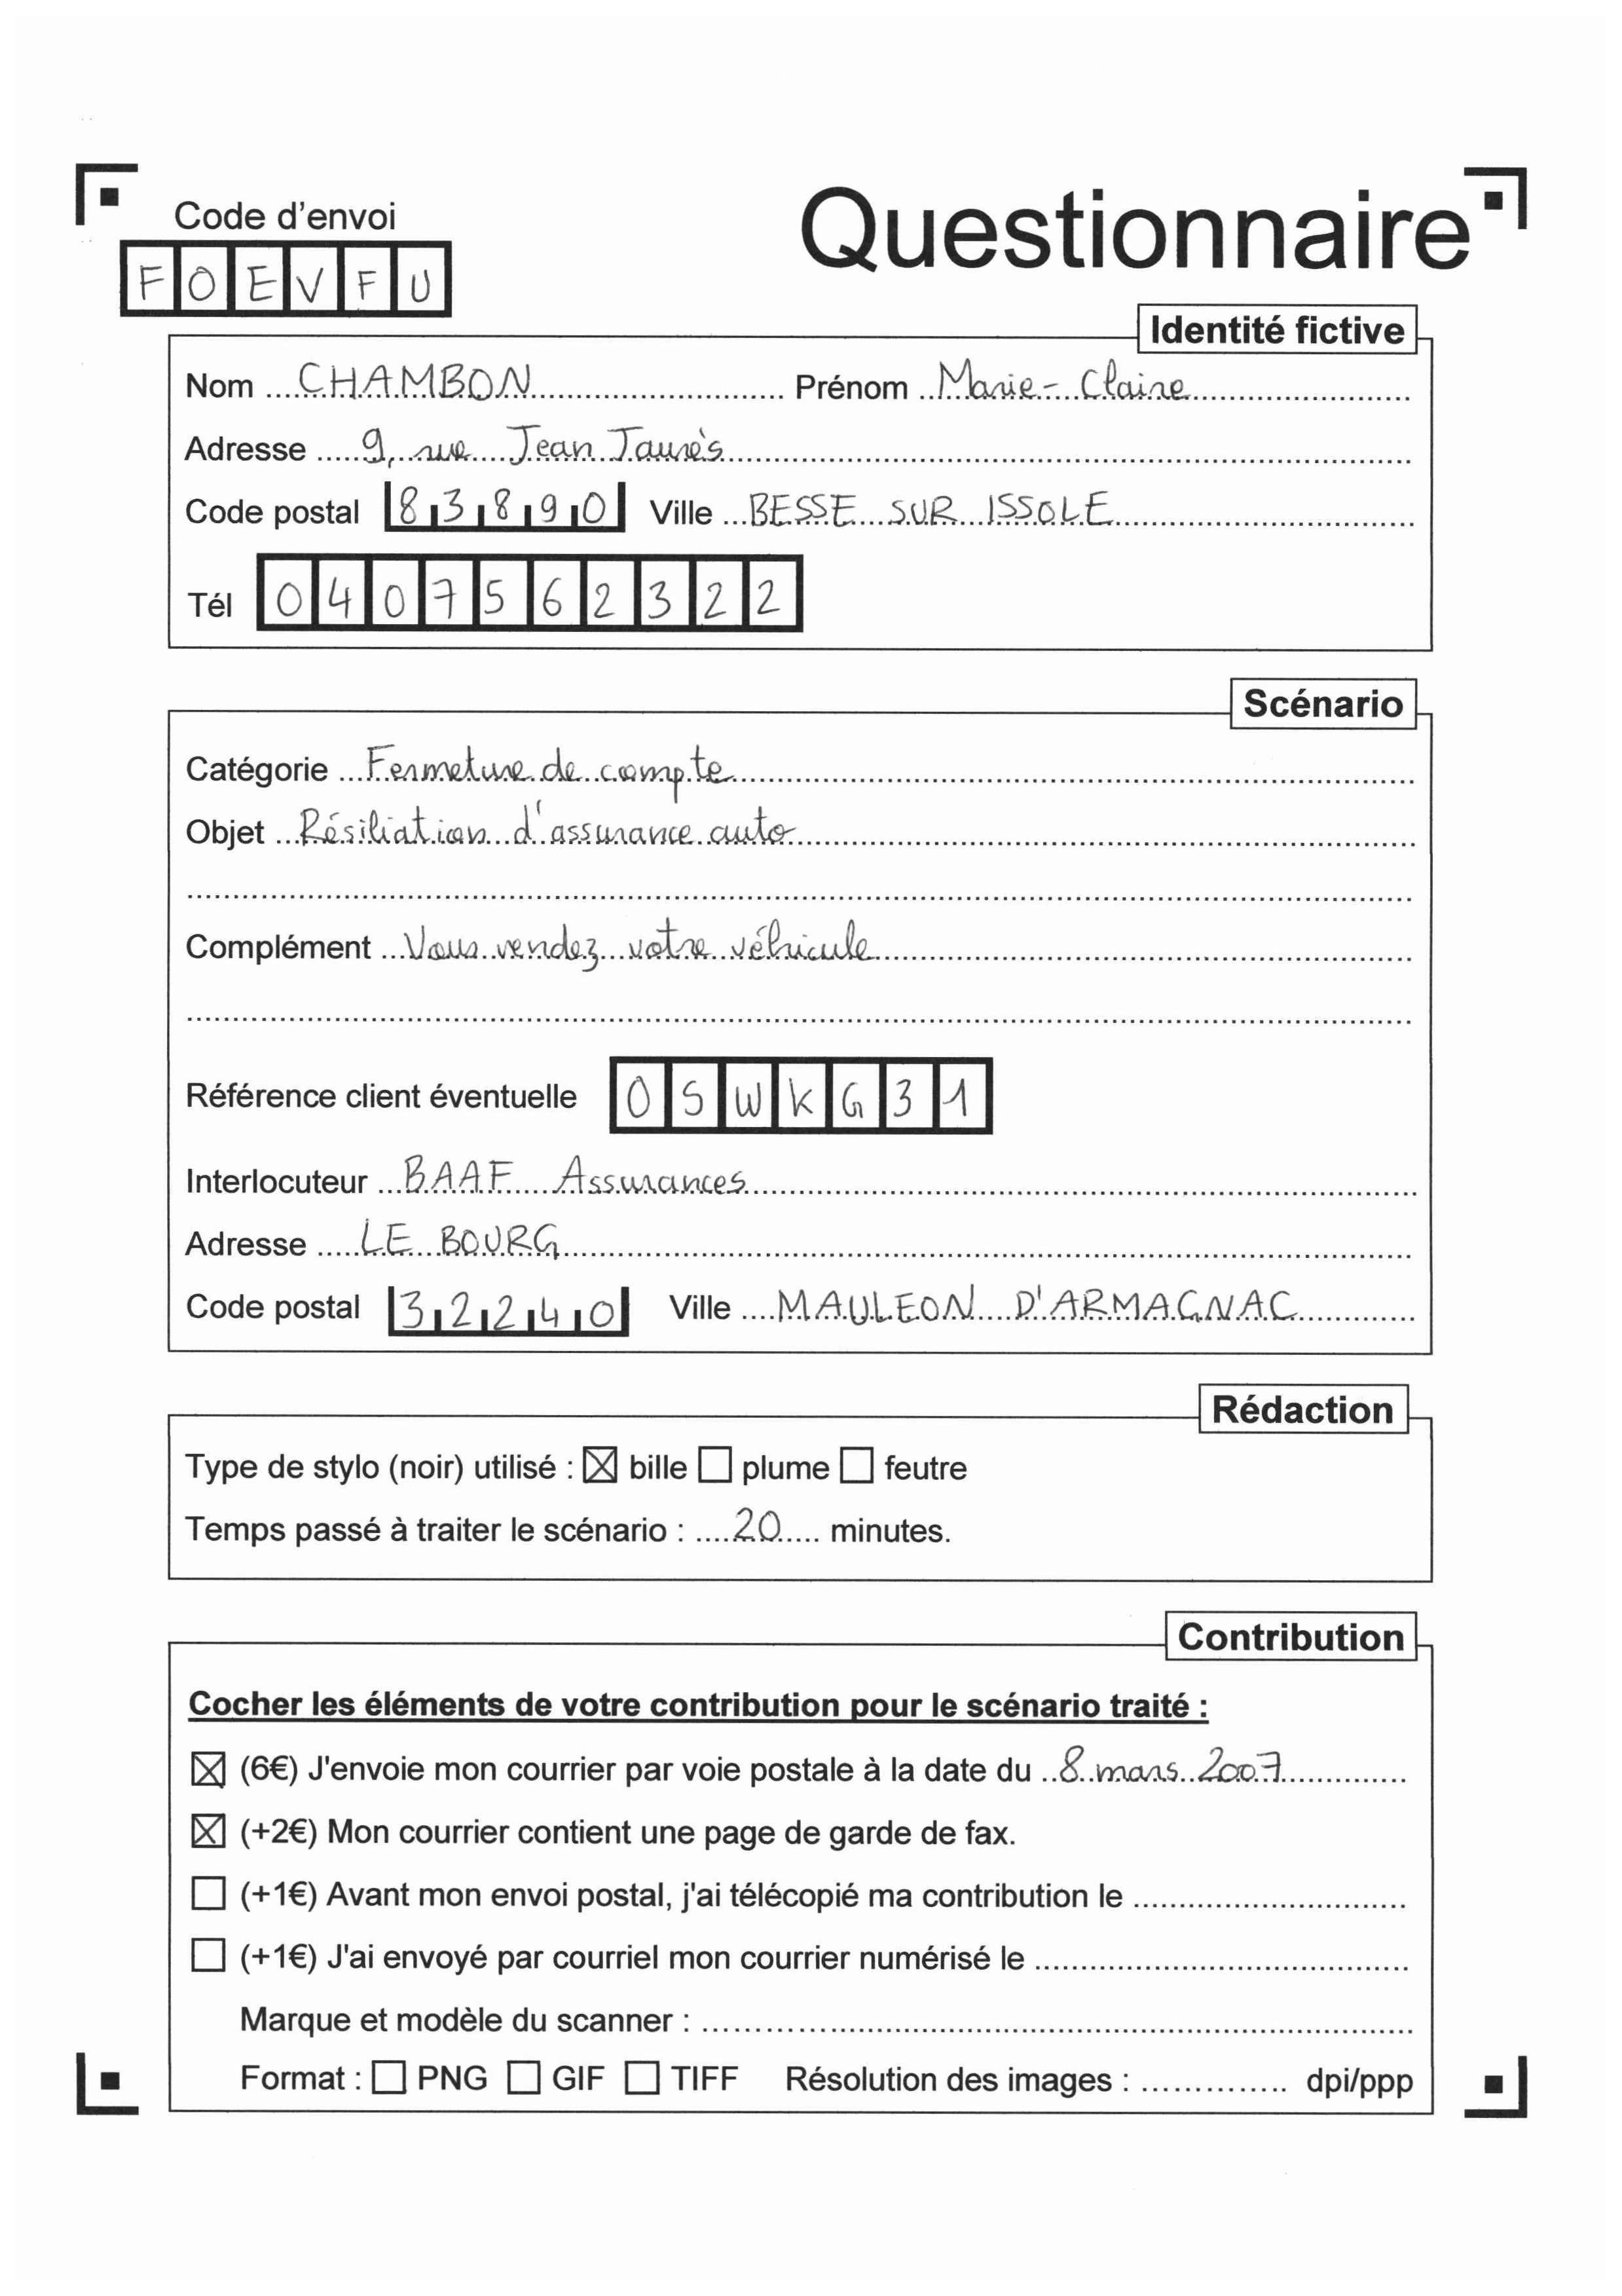 Code d'envoi
Questionnaire
FOEVFU
Identité fictive
Nom CHAMBON Prénom Marie-Claire
Adresse 9, rue Jean Jaurès
Code postal 83890 Ville BESSE SUR ISSOLE
Tél 0407562322
Scénario
Catégorie Fermeture de compte
Objet Résiliation d'assurance auto
Complément Vous vendez votre véhicule
Référence client éventuelle OSWKG31
Interlocuteur BAAF Assurances
Adresse LE BOURG
Code postal 32240 Ville MAULEON D'ARMAGNAC
Rédaction
Type de stylo (noir) utilisé : ☒ bille ☐ plume ☐ feutre
Temps passé à traiter le scénario : 20 minutes.
Contribution
Cocher les éléments de votre contribution pour le scénario traité :
☒ (6€) J'envoie mon courrier par voie postale à la date du 8 mars 2007
☒ (+2€) Mon courrier contient une page de garde de fax.
☐ (+1€) Avant mon envoi postal, j'ai télécopié ma contribution le
☐ (+1€) J'ai envoyé par courriel mon courrier numérisé le
Marque et modèle du scanner :
Format : ☐ PNG ☐ GIF ☐ TIFF Résolution des images : dpi/ppp